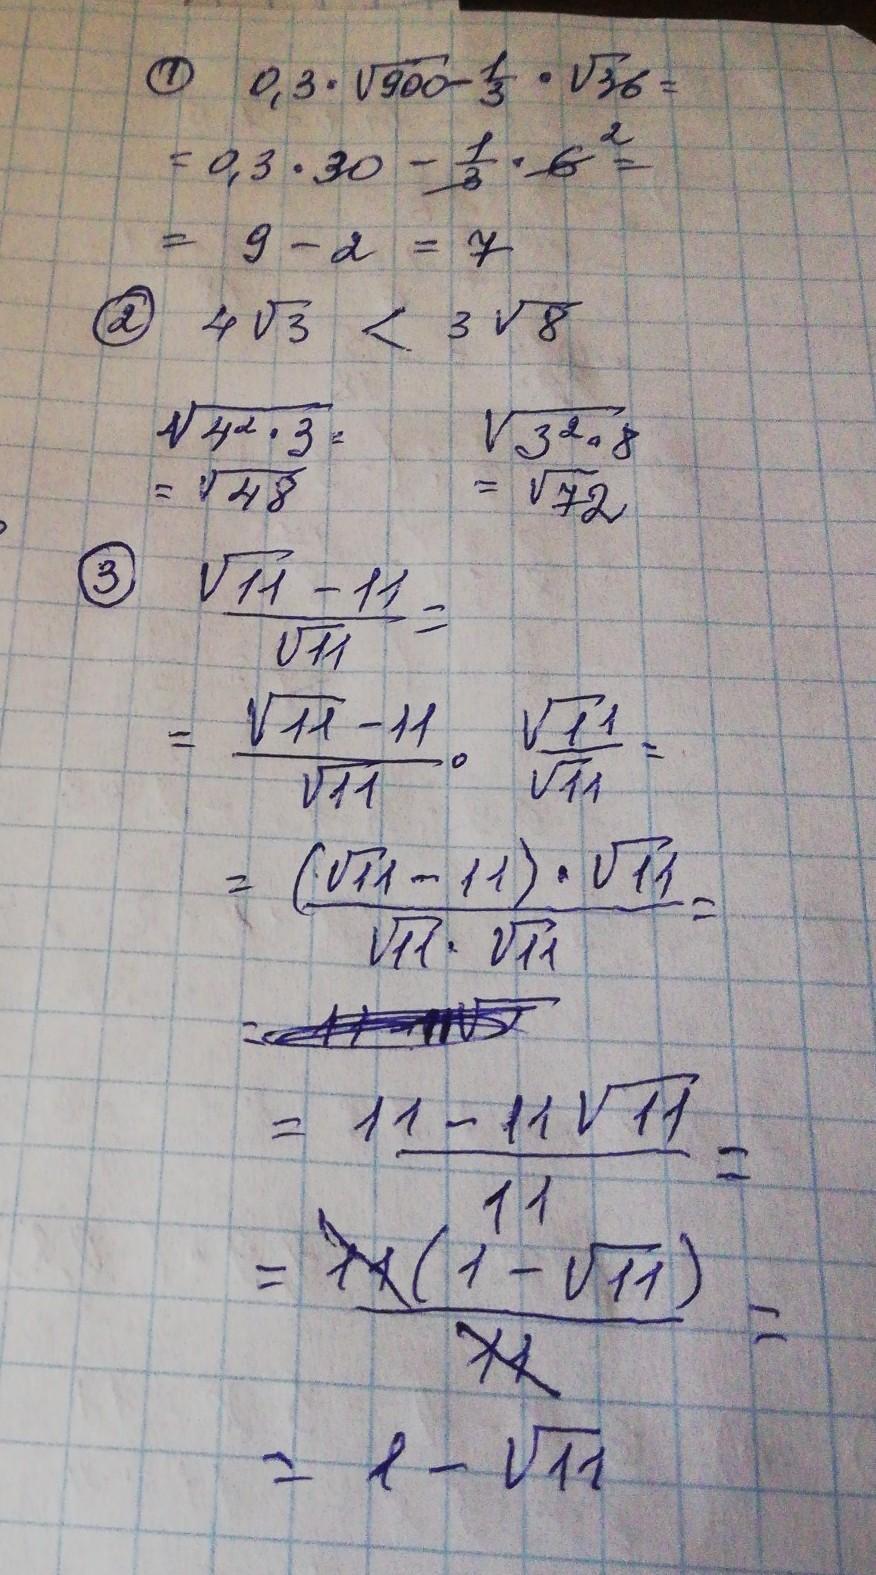 ① 0,3 · √900 - 1/3 · √36 =
= 0,3 · 30 - 1/3 · 6 ² =
= 9 - 2 = 7
② 4√3 < 3√8
√(4² · 3) = √(3² · 8)
= √48 = √72
③ (√11 - 11)/√11 =
= (√11 - 11)/√11 · √11/√11 =
= ((√11 - 11) · √11)/(√11 · √11) =
=
= (11 - 11√11)/11 =
= 11(1 - √11)/11 =
= 1 - √11